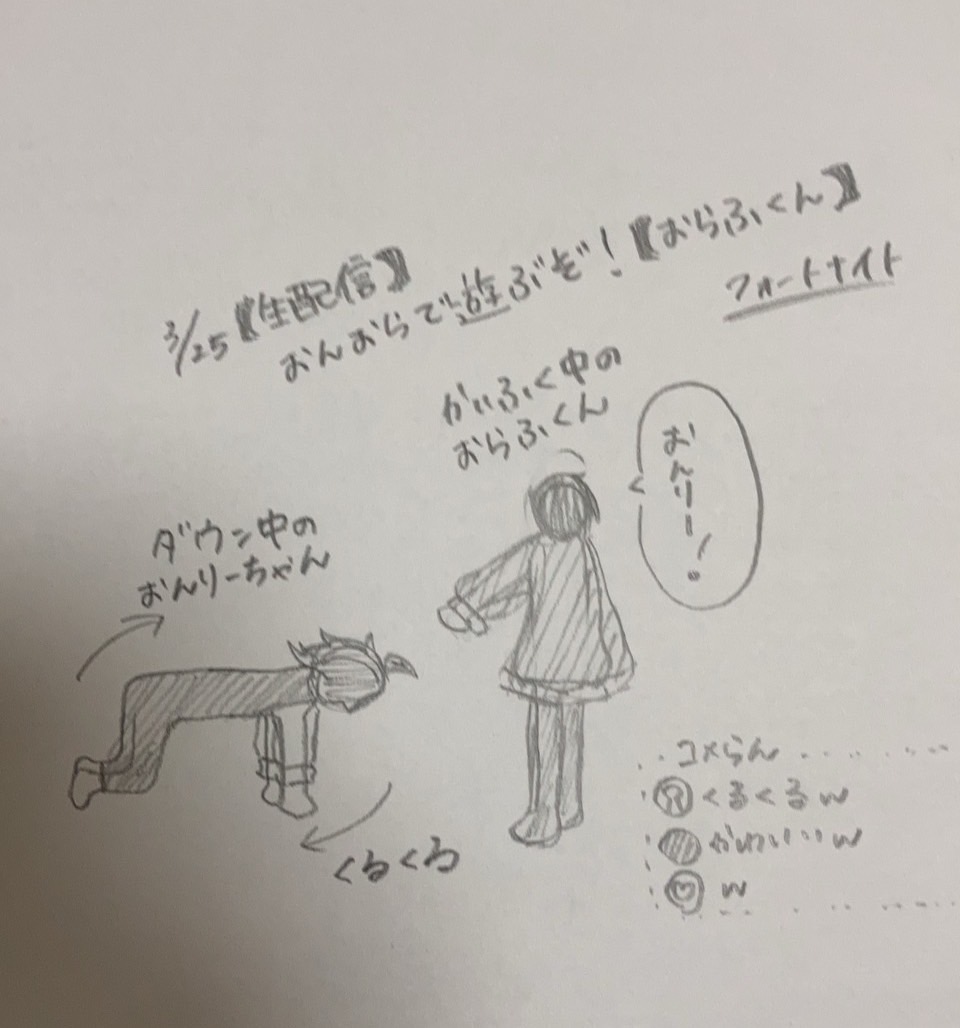 3/25【生配信】
おんおらで遊ぶぞ!【おらふくん】
フォートナイト
かいふく中の
おらふくん
おんりー!
ダウン中の
おんりーちゃん
くるくる
コメらん
くるくるw
かわいいw
w